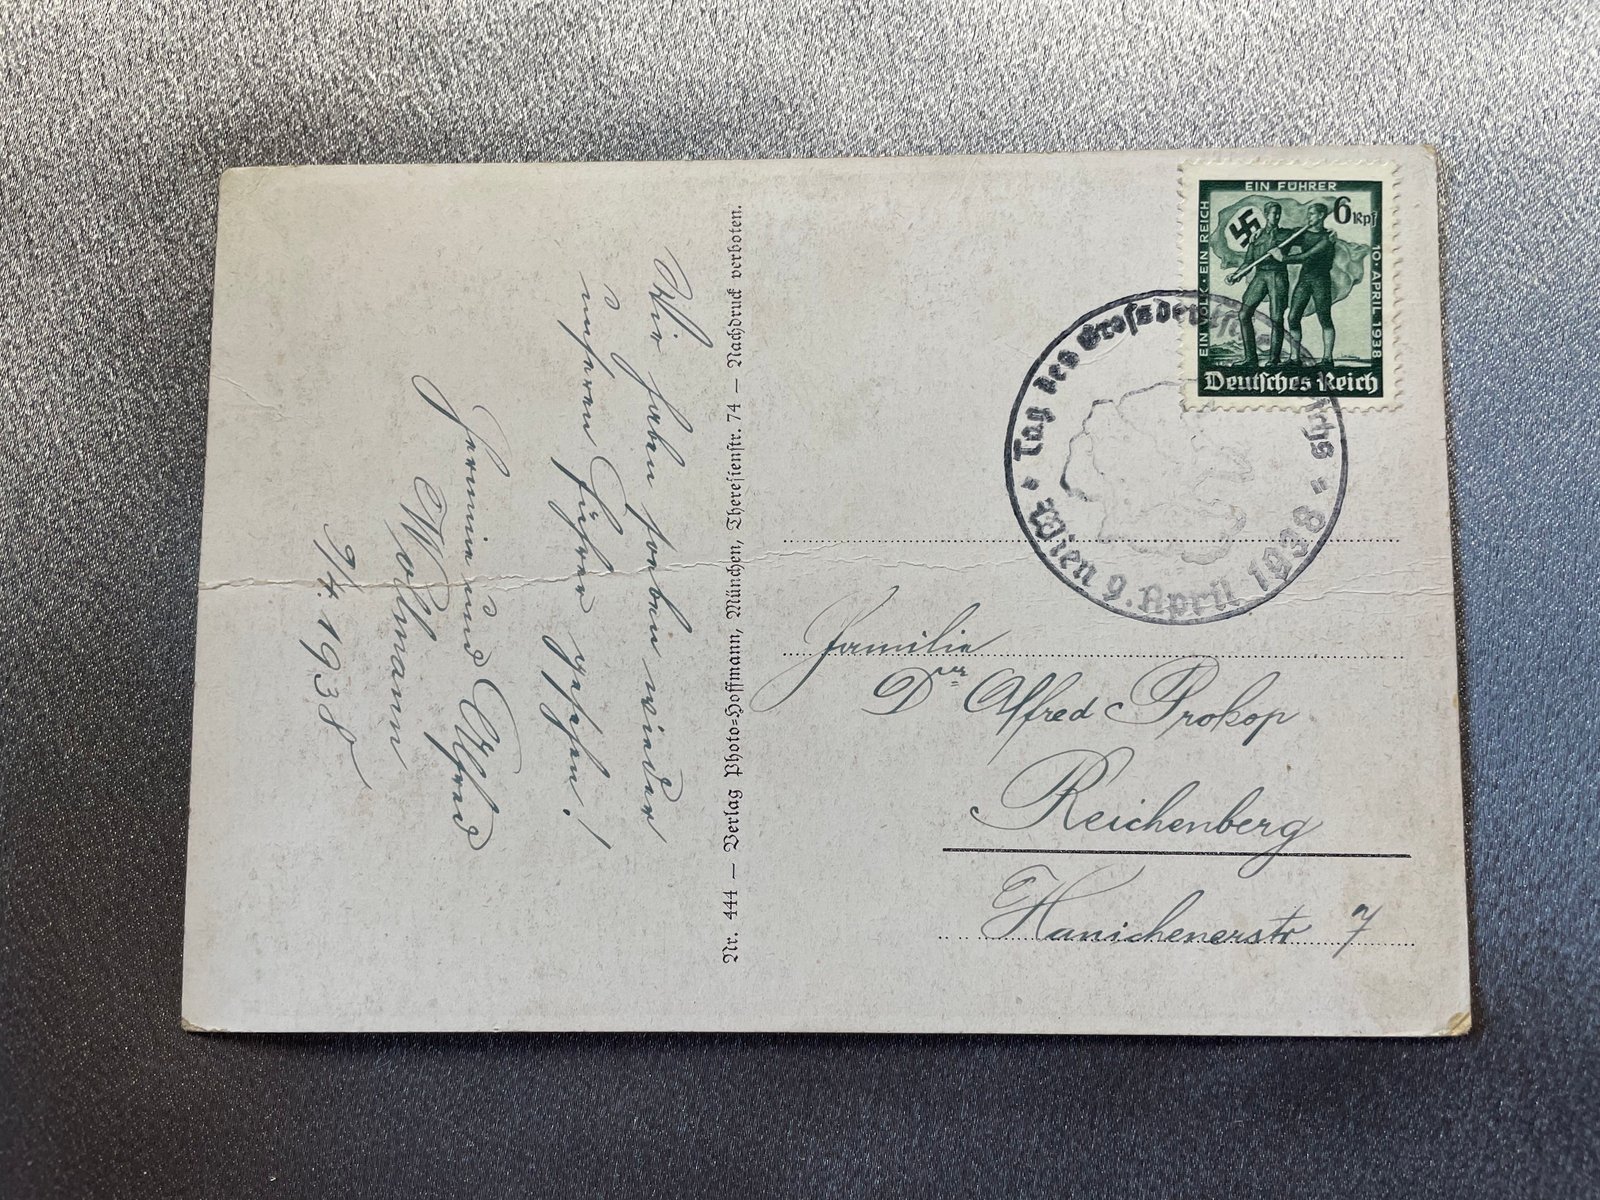 Wir haben soeben wieder
unseren Führer gesehen!
Hermine und Alfred
Wollmann
9/4. 1938
Nr. 444 — Verlag Photo-Hoffmann, München, Theresienstr. 74 — Nachdruck verboten.
EIN VOLK · EIN REICH
EIN FÜHRER
10 · APRIL 1938
6 Rpf
Deutsches Reich
Tag des Grossdeutschen Reichs
Wien 9. April 1938
Familie
Dr Alfred Prokop
Reichenberg
Hanichenerstr 7